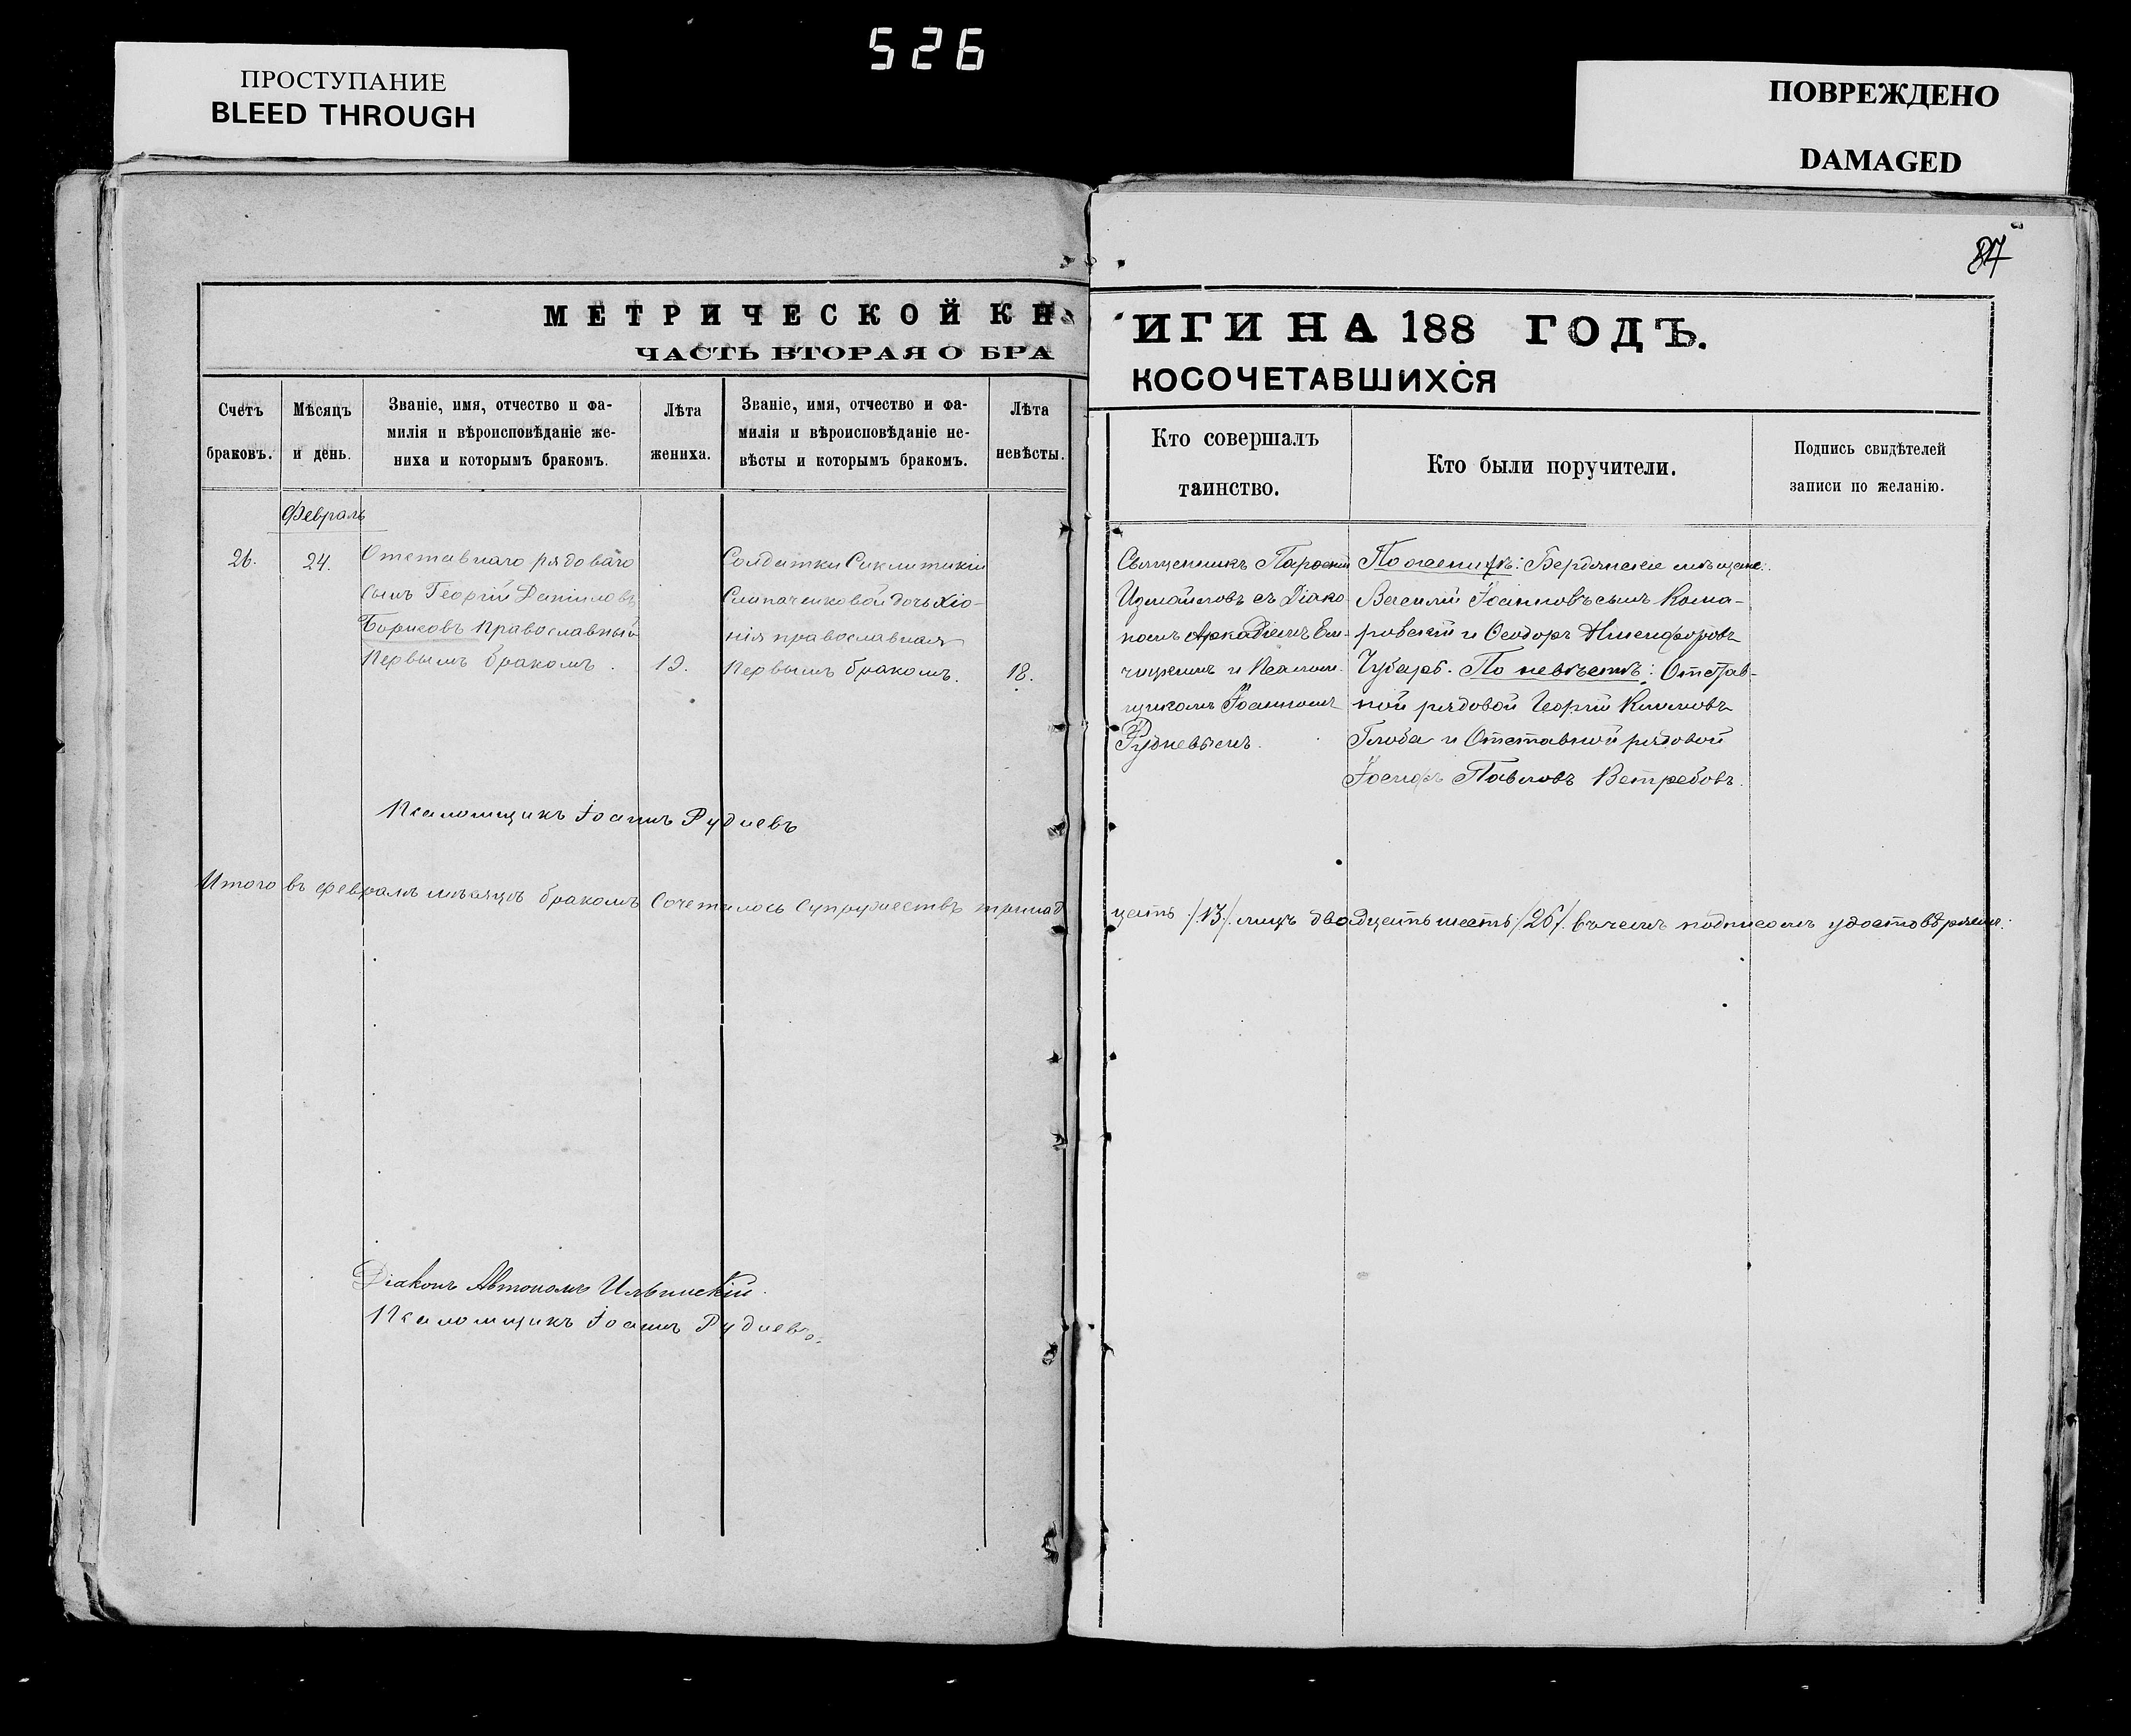 526
ПРОСТУПАНИЕ
BLEED THROUGH
ПОВРЕЖДЕНО
DAMAGED
87
МЕТРИЧЕСКОЙ КНИГИ НА 188 ГОДЪ.
ЧАСТЬ ВТОРАЯ О БРАКОСОЧЕТАВШИХСЯ
Счетъ
браковъ.
Мѣсяцъ
и день.
Званіе, имя, отчество и фа-
милія и вѣроисповѣданіе же-
ниха и которымъ бракомъ.
Лѣта
жениха.
Званіе, имя, отчество и фа-
милія и вѣроисповѣданіе не-
вѣсты и которымъ бракомъ.
Лѣта
невѣсты.
Кто совершалъ
таинство.
Кто были поручители.
Подпись свидѣтелей
записи по желанію.
Февраль
26.
24.
Отставнаго рядоваго
сынъ Георгій Даніиловъ
Борисовъ православный
Первымъ бракомъ.
19.
Солдатки Синклитикіи
Слипаченковой дочь Хіо-
нія православная
Первымъ бракомъ.
18.
Священникъ
Измайловъ съ Діако-
номъ Аркадіемъ
и Псалом-
щикомъ Іоанномъ
Рудневымъ.
По женихѣ: Бердянскіе мѣщане:
Василій Іоанновъ сынъ Кома-
ровскій и Ѳеодоръ Никифоровъ
Чубарь. По невѣстѣ: Отстав-
ной рядовой Георгій Климовъ
Глоба и Отставной рядовой
Іосифъ Павловъ Ветребовъ.
Псаломщикъ Іоаннъ Рудневъ
Итого въ февралѣ мѣсяцѣ бракомъ сочеталось супружествъ тринад
цать /13/. лицъ двадцать шесть /26/. въ чемъ подписомъ удостовѣряемъ:
Діаконъ Автономъ Ильинскій.
Псаломщикъ Іоаннъ Рудневъ.